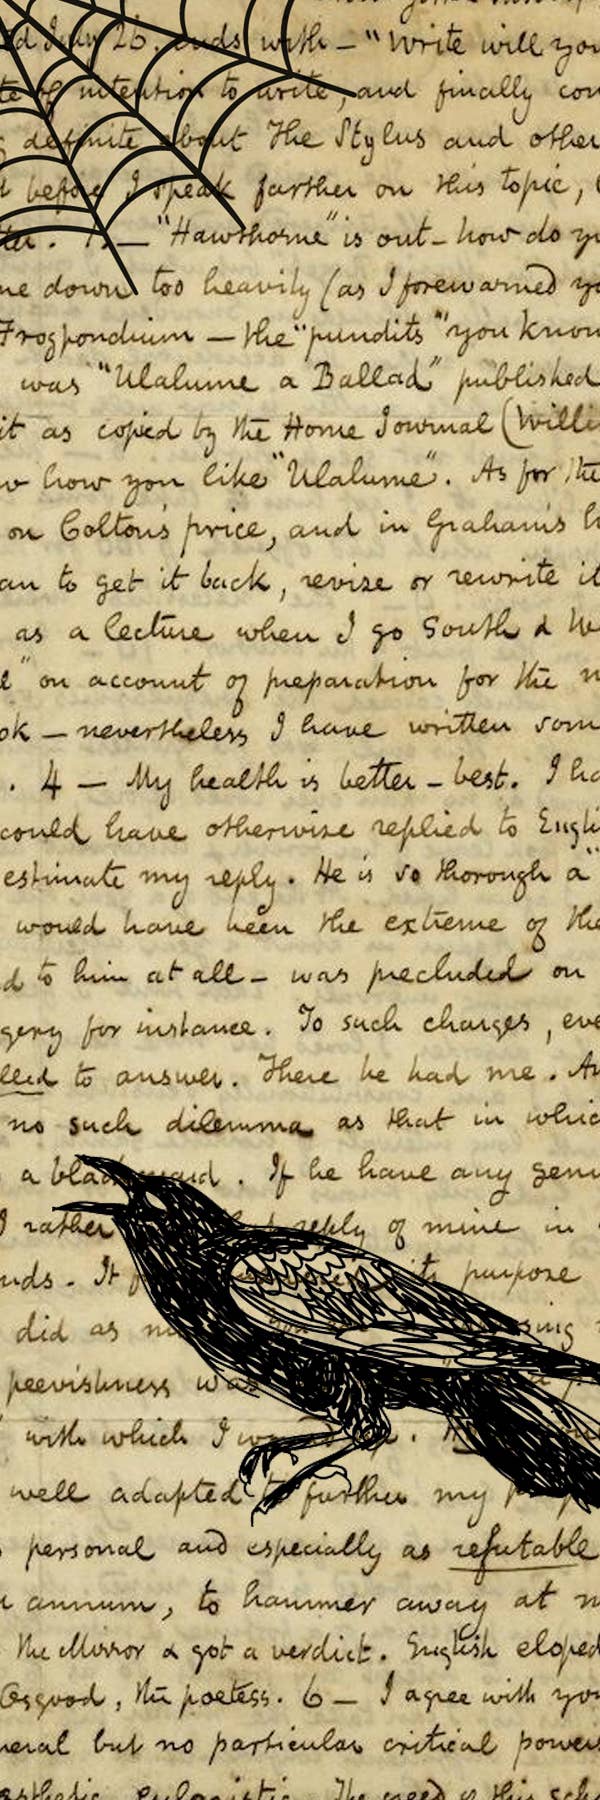 July 26. ends with - "Write will you
of intention to write, and finally
definite about The Stylus and other
before I speak farther on this topic,
1. — "Hawthorne" is out - how do
down too heavily (as I forewarned
Frogpondium — the "pundits" you know
was "Ulalume a Ballad" published
it as copied by the Home Journal (Willi
how you like "Ulalume". As for the
on Colton's price, and in Graham's
to get it back, revise or rewrite it
as a lecture when I go South & W
" on account of preparation for the
— nevertheless I have written som
. 4 — My health is better - best. I ha
could have otherwise replied to Engli
estimate my reply. He is so thorough a "
would have been the extreme of the
to him at all - was precluded on
gery for instance. To such charges, eve
to answer. There he had me.
no such dilemma as that in which
a . If he have any genu
I rather reply of mine in
nds - It its purpose
did as
peevishness was
with which I
well adapted to further my
personal and especially as refutable
annum, to hammer away at
The Mirror & got a verdict. English eloped
Osgood, the poetess. 6 — I agree with you
neral but no particular critical powers
The need of this